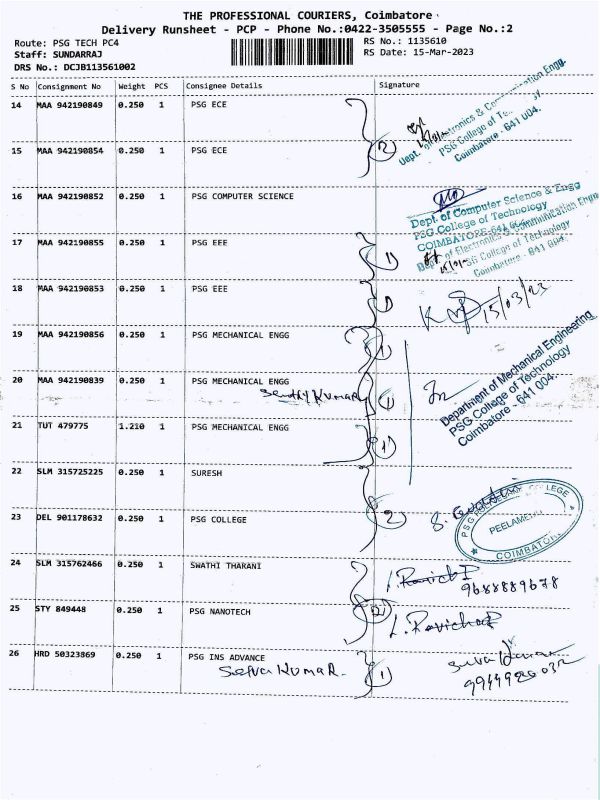 THE PROFESSIONAL COURIERS, Coimbatore
Delivery Runsheet - PCP - Phone No.:0422-3505555 - Page No.:2
Route: PSG TECH PC4
Staff: SUNDARRAJ
DRS No.: DCJB113561002
RS No.: 1135610
RS Date: 15-Mar-2023
S No Consignment No Weight PCS Consignee Details Signature
14 MAA 942190849 0.250 1 PSG ECE
15 MAA 942190854 0.250 1 PSG ECE
2
Dept. of Electronics & Communication Engg.
PSG College of Technology
Coimbatore - 641 004.
16 MAA 942190852 0.250 1 PSG COMPUTER SCIENCE
Dept. of Computer Science & Engg
PSG College of Technology
COIMBATORE-641
17 MAA 942190855 0.250 1 PSG EEE
1
Dept of Electronics & Communication Engg
PSG College of Technology
Coimbatore - 641 004.
18 MAA 942190853 0.250 1 PSG EEE
1
15/03/23
19 MAA 942190856 0.250 1 PSG MECHANICAL ENGG
1
20 MAA 942190839 0.250 1 PSG MECHANICAL ENGG
Senthil Kumar
1
Department of Mechanical Engineering
PSG College of Technology
Coimbatore - 641 004.
21 TUT 479775 1.210 1 PSG MECHANICAL ENGG
1
22 SLM 315725225 0.250 1 SURESH
23 DEL 901178632 0.250 1 PSG COLLEGE
2
PSG COLLEGE
PEELAMEDU
COIMBATORE
24 SLM 315762466 0.250 1 SWATHI THARANI
9688889678
25 STY 849448 0.250 1 PSG NANOTECH
2
26 HRD 50323869 0.250 1 PSG INS ADVANCE
Selva KUMAR.
1